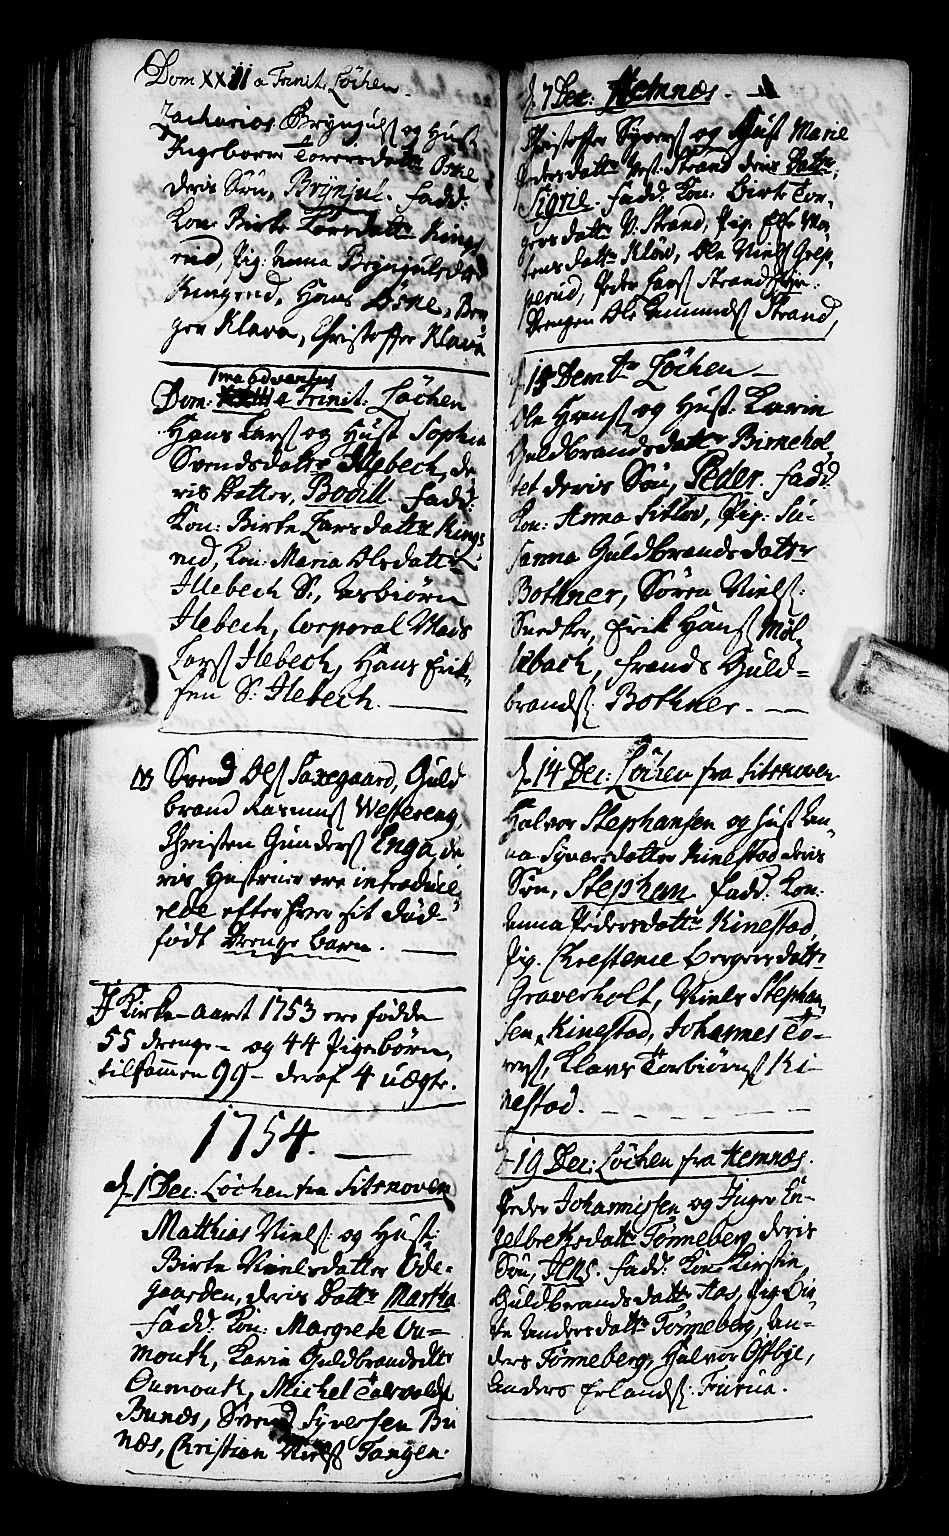 Dom XXIII a Trinit: Löchen.
Zacharias Brÿnjuls: og Hust
Ingeborre Torersdatter Öske
deris Sön, Brÿnjul. Fadd:
Kon: Birte Torersdatter Kings
rud, Pig: Anna Brÿnjulsdatt
Kingsrud, Hans Öske, Bør
ger Klava, Christoffer Klava
1ma Adventus
Dom: a Trinit: Löchen
Hans Larss: og Hust Sophia
Svendsdatter Illebech, de
ris Datter, Bodill. Fadd:
Kon: Birte Larsdatter Kings
rud, Kon: Maria Olsdatter
Illebech S:, Asbiörn
Ilebech, Corporal Mads
Larss: Ilebech, Hans Erik-
sen S: Ilebech.
NB Svend Olss: Saxegaard, Guld
brand Rasmuss: Westereng,
Christen Gunderss: Enga, de
ris Hustruer ere introduce
rede efter hver sit död-
födt Drenge barn.
I Kirke-aaret 1753 ere födde
55 drenge- og 44 Pigebörn,
tilsammen 99 - deraf 4 uægte.
1754.
d. 1 Dec: Löchen fra Sitsnoven
Matthias Nielss: og Hust:
Birte Nielsdatter Ode-
gaarden, deris Datter Martha
Fadd: Kon: Margrete Ou-
mouth, Karin Guldbrandsdtr
Oumouth, Michel Torvalds
Bunæs, Svend Syversen Bu
næs, Christian Nielss: Tangen.
d. 7 Dec: Hemnæs.
Christoffer Syverss: og Hust Marie
Pedersdatter Vest-Strand deris Datter,
Signe. Fadd: Kon: Birte Tor-
gersdatter V: Strand, Pig: Else Mor
tensdatter Klöv, Ole Nielss: Grep-
perud, Peder Larss: Strand,
Drengen Ole Amundss: Strand,
d. 13 Dembr Löchen
Ole Hanss: og Hust: Karin
Guldbrandsdatter Birnehol
tet deris Sön, Peder. Fadd:
Kon: Anna Sitlov, Pig: Su-
sanna Guldbrandsdatter
Bothner, Sören Nielss:
Snedker, Erik Hanss: Möl
lebach, Frands Guld-
brandss: Bothner.
d. 14 Dec: Löchen fra Sitsnoven
Halvor Stephansen og Hust An-
na Syversdatter Kinestad deris
Sön, Stephan. Fadd: Kon:
Anna Pedersdatter Kinestad,
Pig. Chrestence Bergersdatter
Graverholt, Niels Stephan
sen Kinestad, Johannes To-
rerss:, Klavs Torbiörnss: Ki-
nestad.
d. 19 Dec: Löchen fra Hemnæs.
Peder Johannissen og Inger En-
gelbretsdatter Tönneberg, deris
Sön, Jens. Fadd: Kon Kirstin
Guldbrandsdatter Aas, Pig: Bir
te Andersdatter Tönneberg, An-
ders Tönneberg, Halvor Östbye,
Anders Erlandss: Furua.